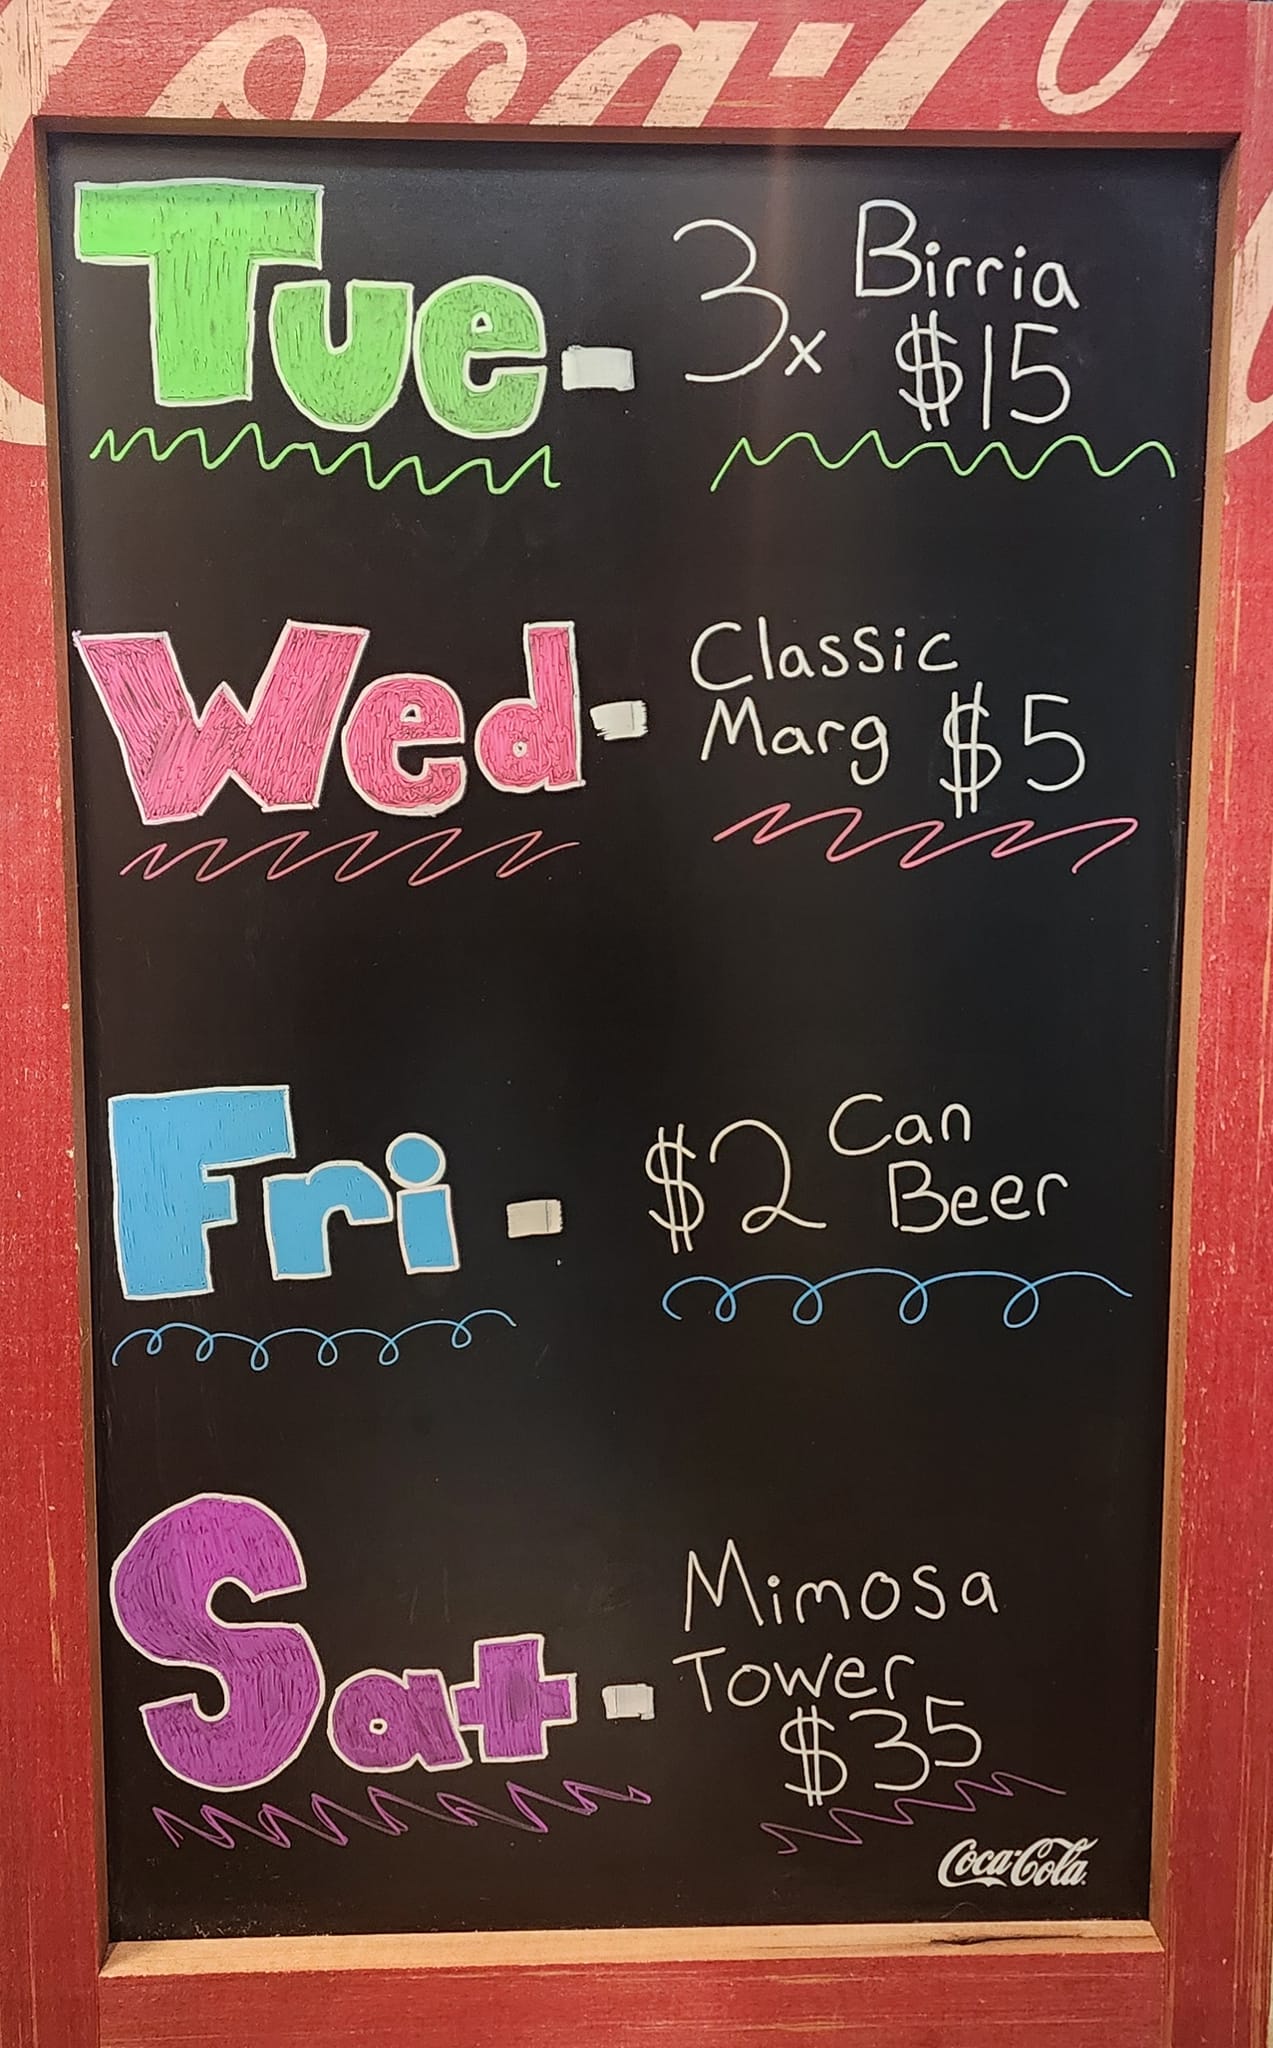 Coca-Co
Tue - 3x Birria
$15
Wed - Classic
Marg $5
Fri - $2 Can
Beer
Sat - Mimosa
Tower
$35
Coca-Cola